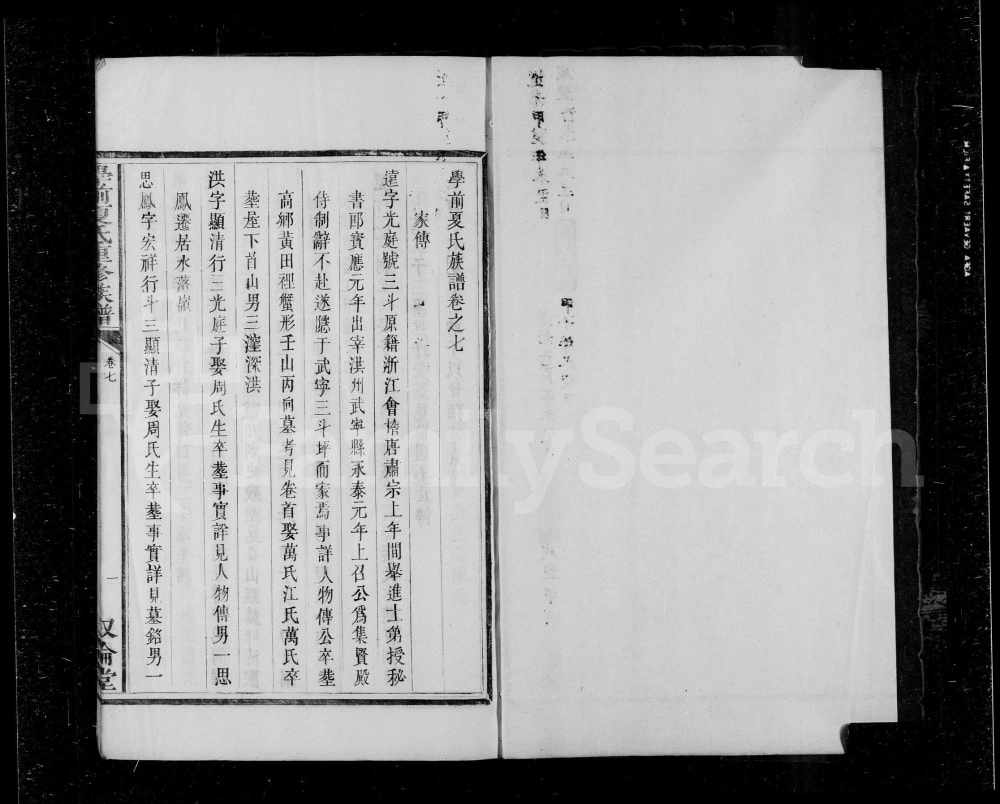 學前夏氏族譜卷之七
家傳
遠字光庭號三斗原籍浙江會稽唐肅宗上年間舉進士第授秘
書郎寶應元年出宰洪州武寧縣永泰元年上召公爲集賢殿
侍制辭不赴遂隱于武寧三斗坪而家焉事詳人物傳公卒塟
高鄉黃田裡蟹形壬山丙向墓考見卷首娶萬氏江氏萬氏卒
塟屋下首山男三瀅深洪
洪字顯清行三光庭子娶周氏生卒塟事實詳見人物傳男一思
鳳遷居水落嶺
思鳳字宏祥行斗三顯清子娶周氏生卒塟事實詳見墓銘男一
學前夏氏重修族譜
卷七
一
敘倫堂
FamilySearch